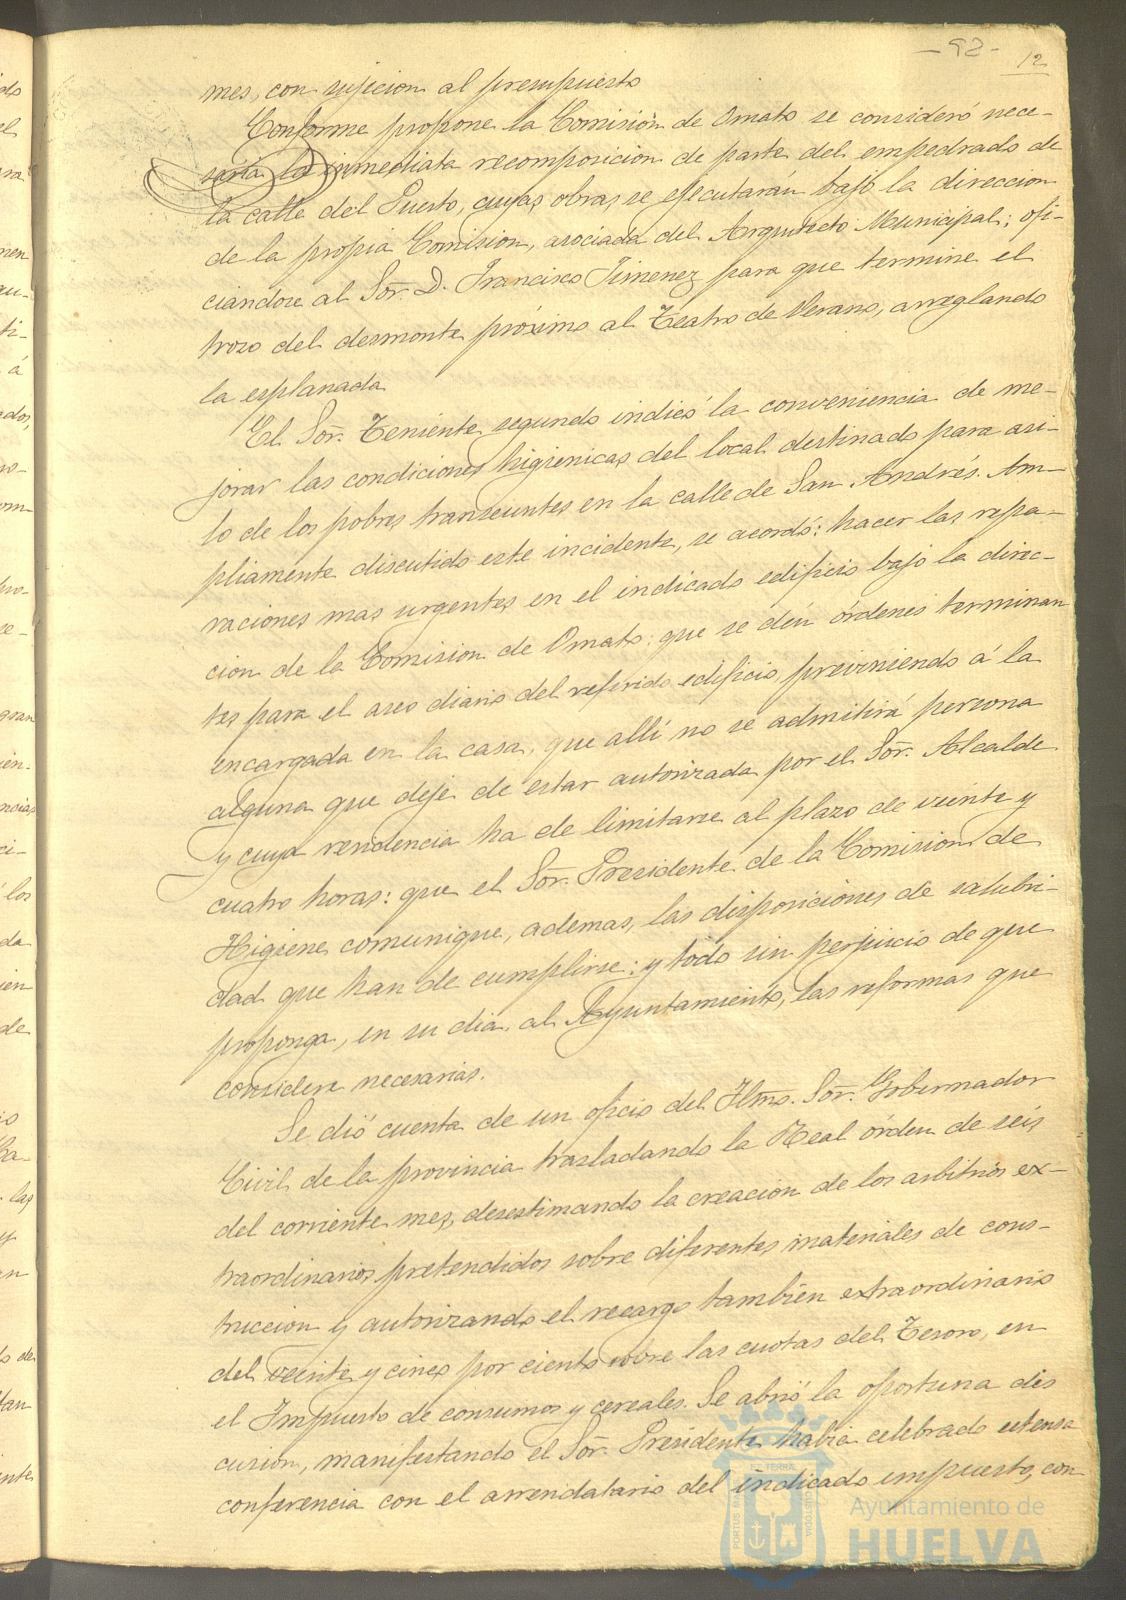 -92-
12
mes, con sujecion al presupuesto
Conforme propone la Comisión de Ornato se consideró nece-
saria la inmediata recomposicion de parte del empedrado de
la calle del Puerto, cuyas obras se ejecutarán bajo la direccion
de la propia Comision, asociada del Arquitecto Municipal; ofi-
ciandose al Sor. D. Francisco Jimenez para que termine el
trozo del desmonte próximo al Teatro de Verano, arreglando
la esplanada
El Sor. Teniente segundo indicó la conveniencia de me-
jorar las condiciones higienicas del local destinado para asi-
lo de los pobres transeuntes en la calle de San Andrés. Am-
pliamente discutido este incidente, se acordó: hacer las repa-
raciones mas urgentes en el indicado edificio bajo la direc-
cion de la Comision de Ornato: que se dén órdenes terminan
tes para el aseo diario del referido edificio, previniendo á la
encargada en la casa, que allí no se admitirá persona
alguna que deje de estar autorizada por el Sor. Alcalde
y cuya residencia ha de limitarse al plazo de veinte y
cuatro horas: que el Sor. Presidente de la Comision de
Higiene comunique, ademas, las disposiciones de salubri-
dad que han de cumplirse: y todo sin perjuicio de que
proponga, en su dia, al Ayuntamiento, las reformas que
considere necesarias.
Se dió cuenta de un oficio del Iltmo. Sor. Gobernador
Civil de la provincia trasladando la Real órden de seis
del corriente mes, desestimando la creacion de los arbitrios ex-
traordinarios pretendidos sobre diferentes materiales de cons-
truccion y autorizando el recargo tambien extraordinario
del veinte y cinco por ciento sobre las cuotas del Tesoro, en
el Impuesto de consumos y cereales. Se abrió la oportuna dis
cusion, manifestando el Sor. Presidente habia celebrado estensa
conferencia con el arrendatario del indicado impuesto, con
Ayuntamiento de
HUELVA